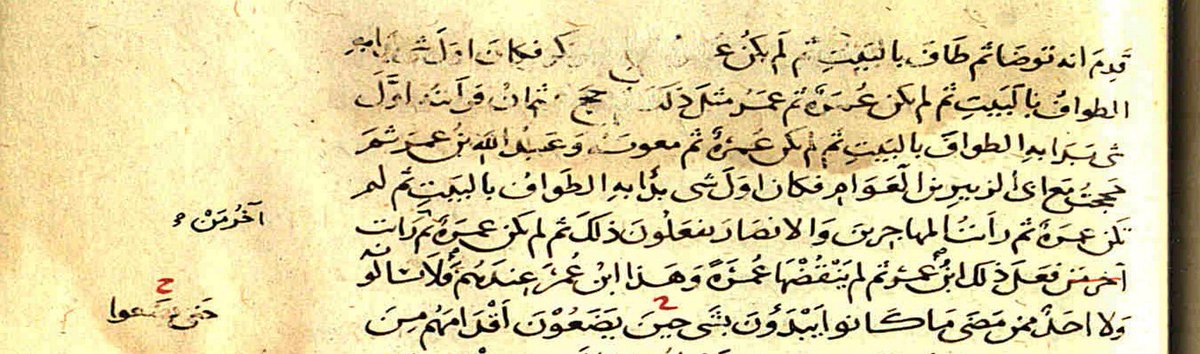 قدم انه توضا ثم طاف بالبيت ثم لم يكن كر فكان اول
الطواف بالبيت ثم لم يكن عمرة ثم عمر مثل ذلك حج عثمان فرايته اول
شى بدا به الطواف بالبيت ثم لم يكن عمرة ثم معوية وعبد الله بن عمر ثم
حججت مع ابى الزبير بن العوام فكان اول شى بدا به الطواف بالبيت ثم لم
تكن عمرة ثم رايت المهاجرين والانصار يفعلون ذلك ثم لم يكن عمرة ثم رايت
فعل ذلك ابن عمر ثم لم ينقضها عمرة وهذا ابن عمر عندهم فلا يسالونه
ولا احد ممن مضى ما كانوا يبدؤن بشى حين يضعون اقدامهم من
آخر من
ح
حتى يضعوا